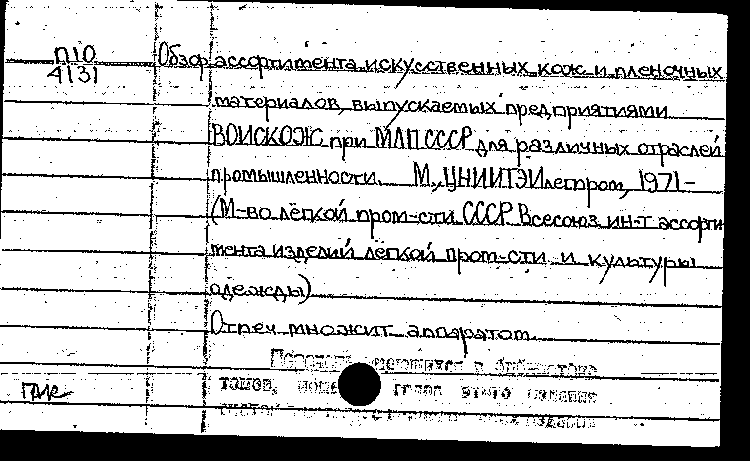 П10
4131
Обзор ассортимента искусственных кож и пленочных
материалов, выпускаемых предприятиями
ВОИСКОЖ при МЛП СССР для различных отраслей
промышленности. М., ЦНИИТЭИлегпром, 1971-
(М-во лёгкой пром-сти СССР. Всесоюз. ин-т ассорти-
мента изделий лёгкой пром-сти и культуры
одежды)
Отпеч. множит. аппаратом.
в библиотеке
томов,
этого издания